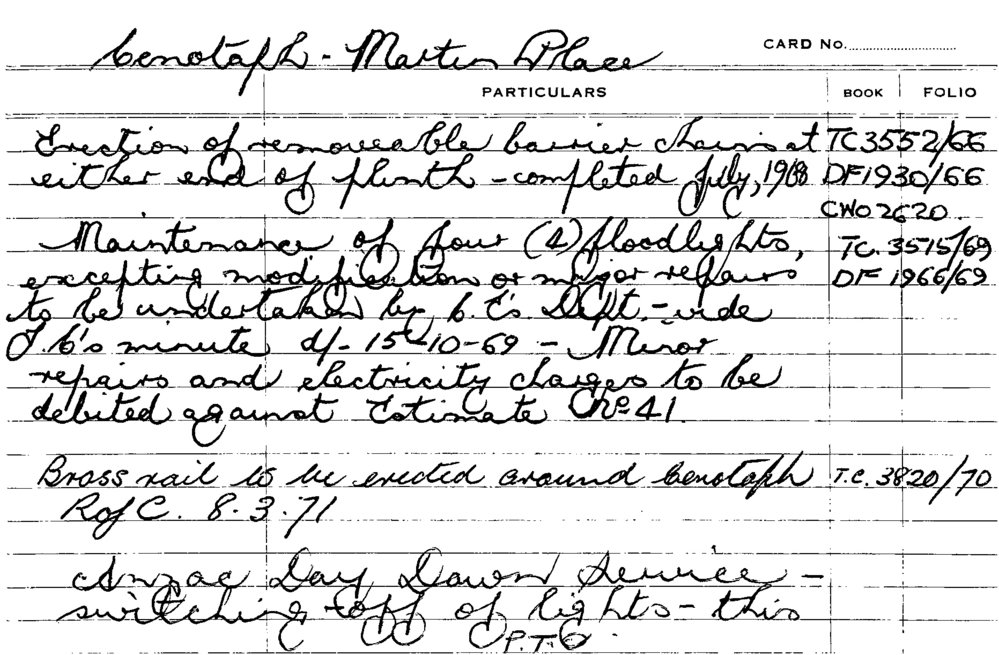 Cenotaph - Martin Place
CARD No.
PARTICULARS BOOK FOLIO
Erection of removeable barrier chains at TC3552/66
either end of plinth - completed July, 1968 DF1930/66
CWO 2620
Maintenance of four (4) floodlights, TC. 3515/69
excepting modification or major repairs DF 1966/69
to be undertaken by C.E's Dept. - vide
T.C's minute d/- 15-10-69 - Minor
repairs and electricity charges to be
debited against Estimate No 41
Brass rail to be erected around Cenotaph T.C. 3820/70
R of C. 8.3.71
Anzac Day Dawn Service -
switching off of lights - this
P.T.O.